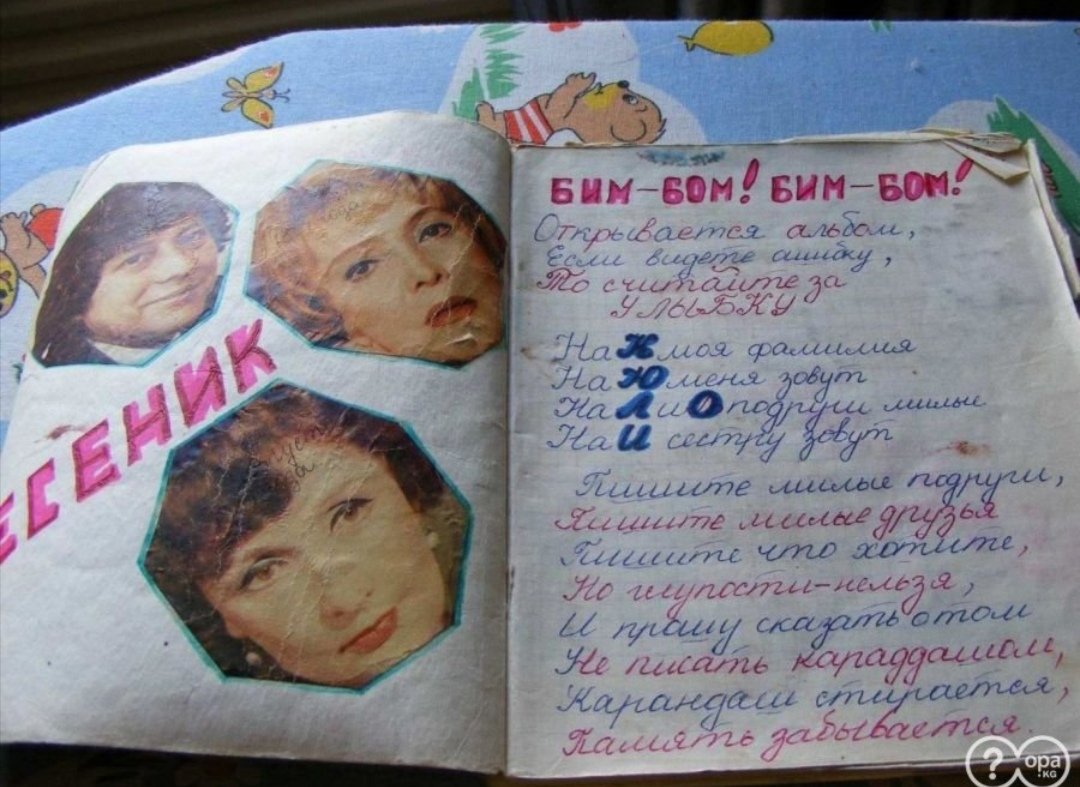 ЕСЕНИК
БИМ-БОМ! БИМ-БОМ!
Открывается альбом,
Если видете ошибку,
То считайте за
УЛЫБКУ
На К моя фамилия
На Ю меня зовут
На Л и О подруги милые
На И сестру зовут
Пишите милые подруги,
Пишите милые друзья
Пишите что хотите,
Но глупости-нельзя,
И прашу сказать о том
Не писать караддашом,
Карандаш стирается,
Память забывается.
?
opa
.KG